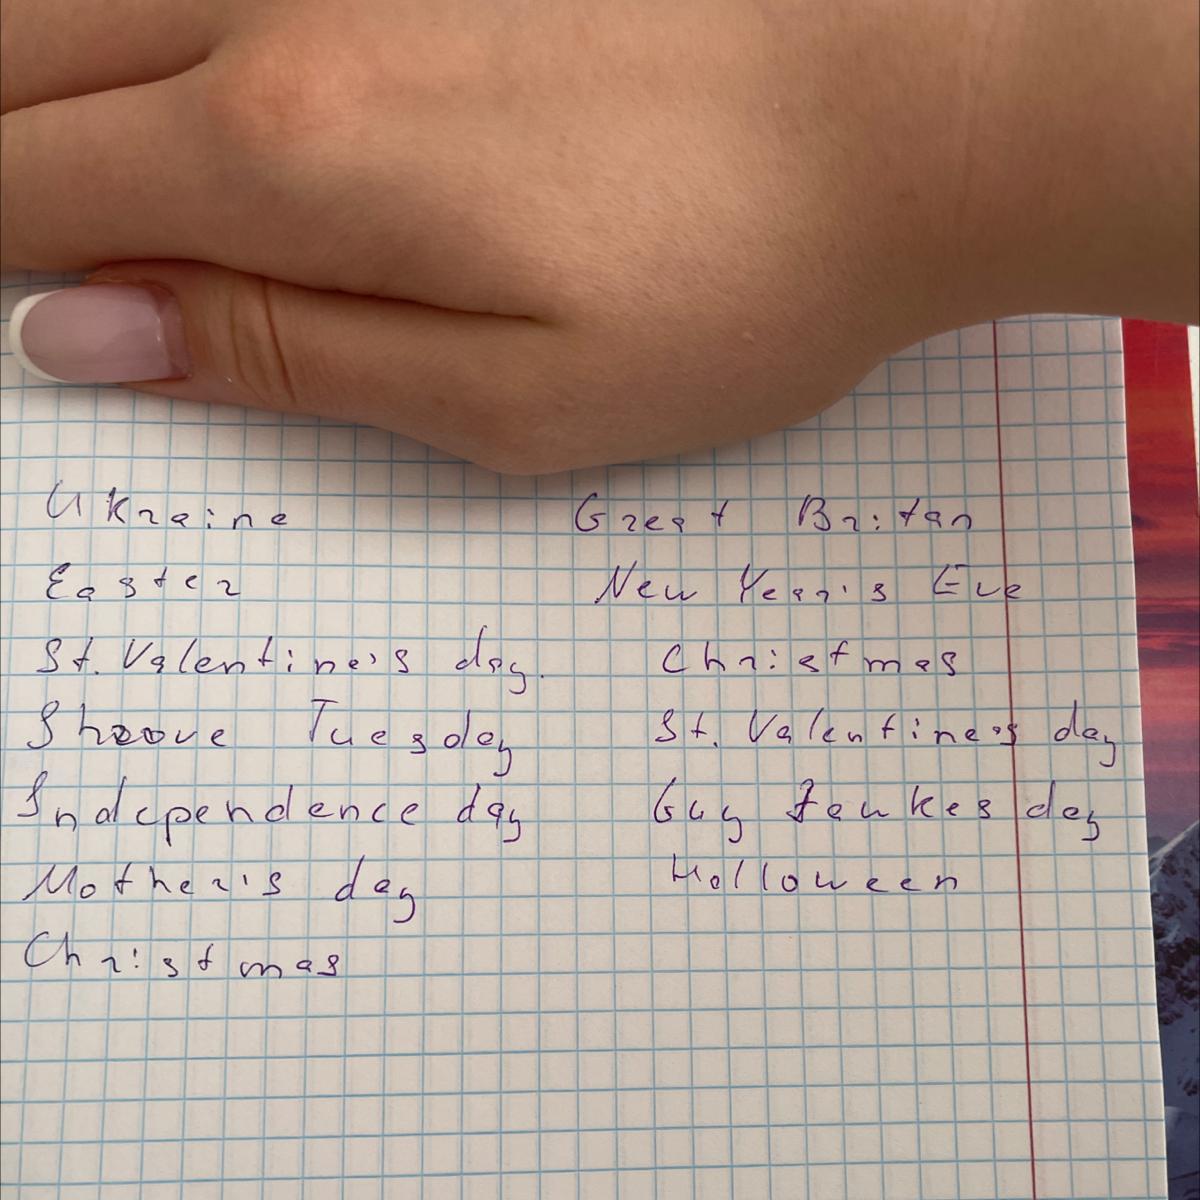 Ukraine
Easter
St. Valentine's day.
Shroove Tuesday
Independence day
Mother's day
Christmas
Great Britan
New Year's Eve
Christmas
St. Valentine's day
Guy Faukes day
Holloween